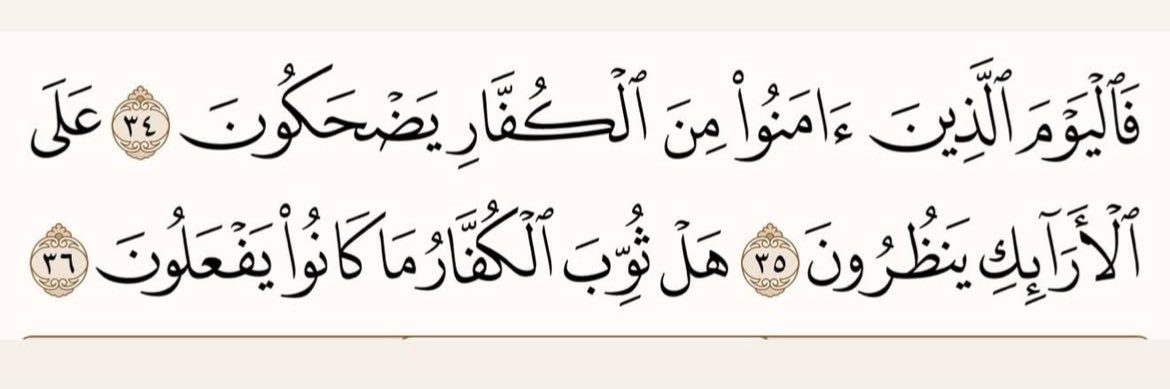 فَٱلۡيَوۡمَ ٱلَّذِينَ ءَامَنُواْ مِنَ ٱلۡكُفَّارِ يَضۡحَكُونَ ٣٤ عَلَى
ٱلۡأَرَآئِكِ يَنظُرُونَ ٣٥ هَلۡ ثُوِّبَ ٱلۡكُفَّارُ مَا كَانُواْ يَفۡعَلُونَ ٣٦